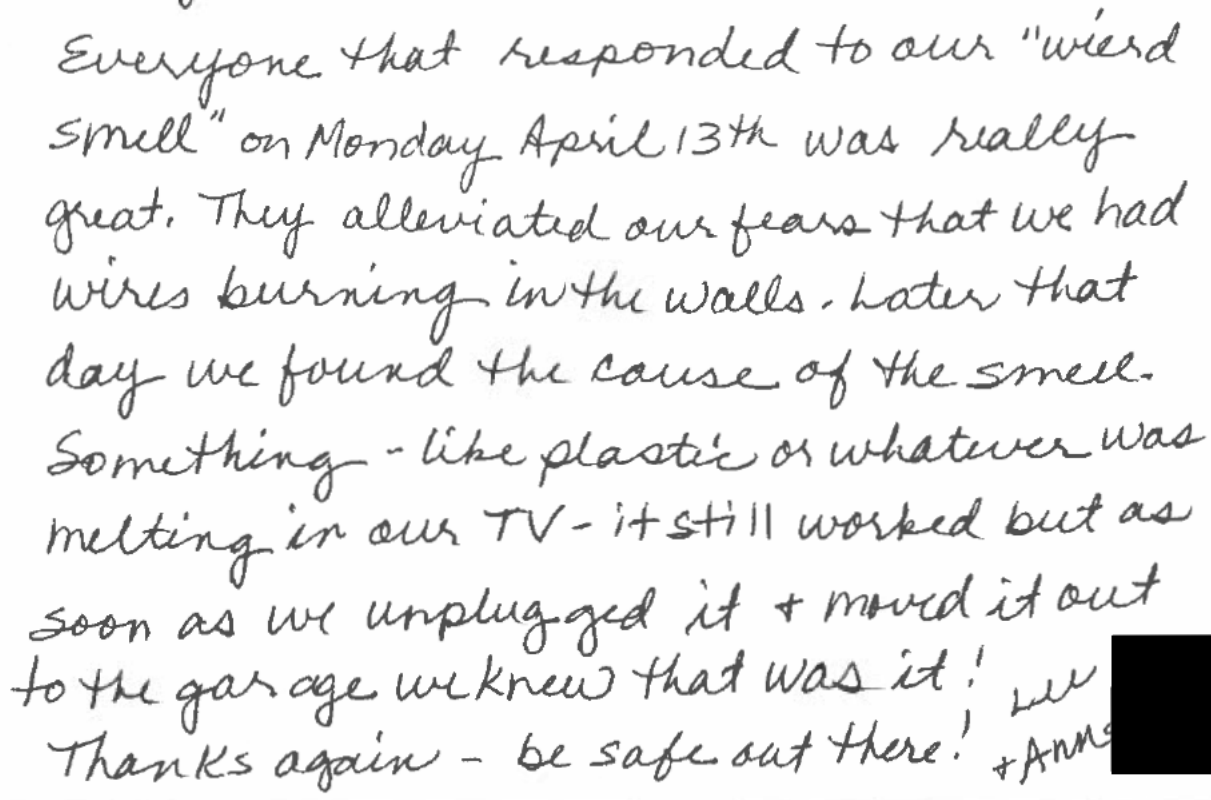 Everyone that responded to our "wierd
smell" on Monday April 13th was really
great. They alleviated our fears that we had
wires burning in the walls. Later that
day we found the cause of the smell.
Something - like plastic or whatever was
melting in our TV - it still worked but as
soon as we unplugged it + moved it out
to the garage we knew that was it! Lee
Thanks again - be safe out there! + Anne